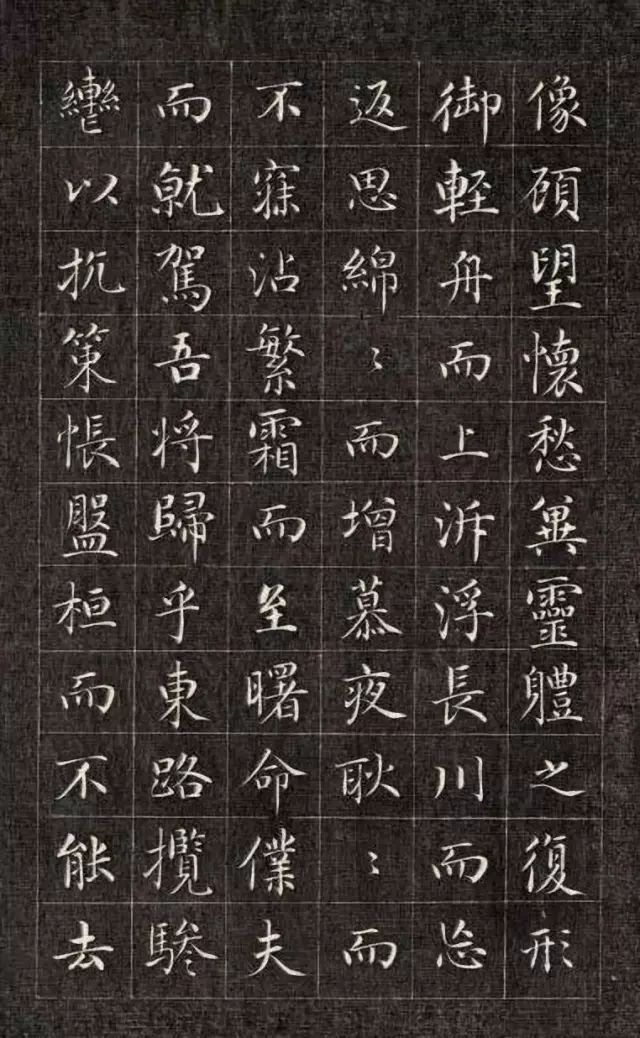 像頋望懷愁兾靈軆之復形
御輕舟而上泝浮長川而忘
返思綿〻而增慕夜耿〻而
不寐沾繁霜而至曙命僕夫
而就駕吾将歸乎東路攬驂
轡以抗策悵盤桓而不能去